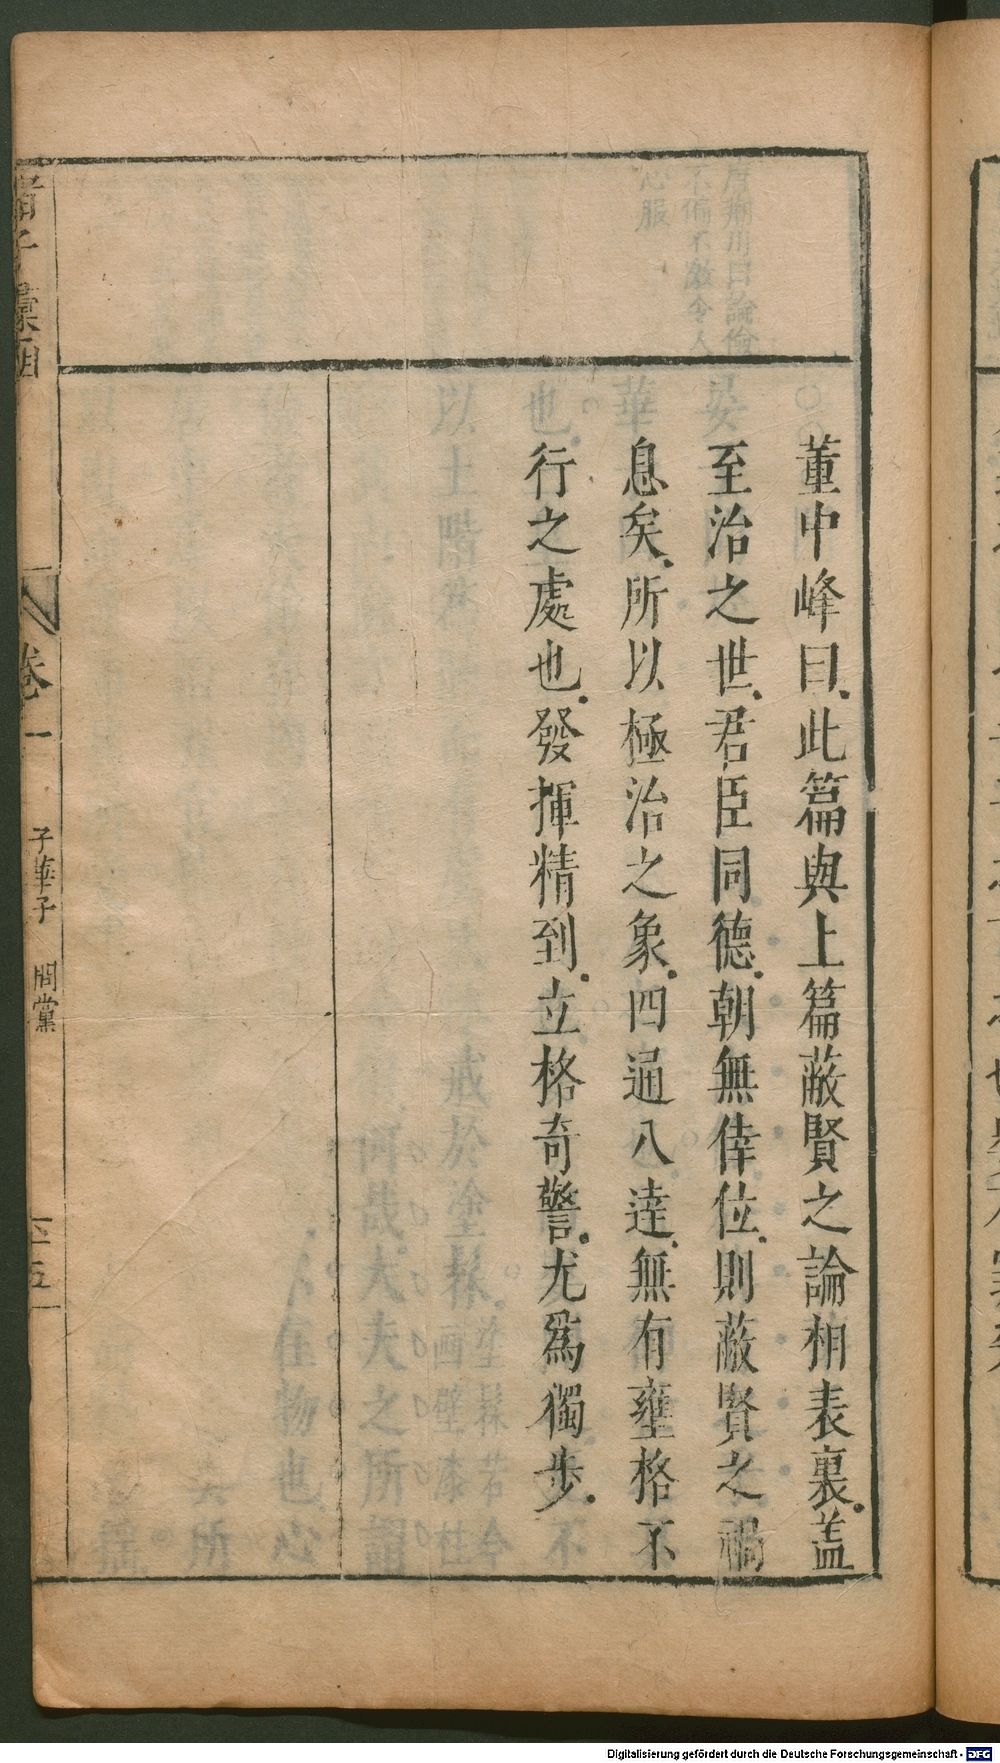 董中峰曰此篇與上篇蔽賢之論相表裏盖
至治之世君臣同德朝無倖位則蔽賢之禍
息矣所以極治之象四通八達無有壅格不
行之處也發揮精到立格奇警尤爲獨步
諸子彙函
卷一
子華子 問黨
五
Digitalisierung gefördert durch die Deutsche Forschungsgemeinschaft - DFG